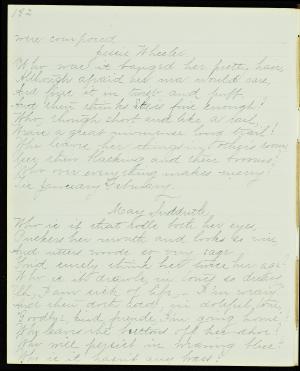 182
were composed
Jessie Wheeler
Who was it banged her pretty hair,
Although afraid her ma would care,
And fixed it in twist and puff
And then thinks it is fine enough!
Who, though short and like a rail,
Wears a great immense long trail!
Who leaves her things in Other's room
Her blacking and their brooms!
Who over everything makes merry!
In January February
May
Who is it that rolls both her eyes,
Puckers her mouth and looks so wise
And utters words so very sage
You'd surely think her twice her age?
Who is it drawls, in tones so dreary
Oh, I am sick of life, I'm weary
And then doth add, in doleful tone,
"Goodbye, kind friends, I'm going home"!
Why leaves she buttons off her shoe!
Who will persist in wearing blue!
Who is it hasn't any